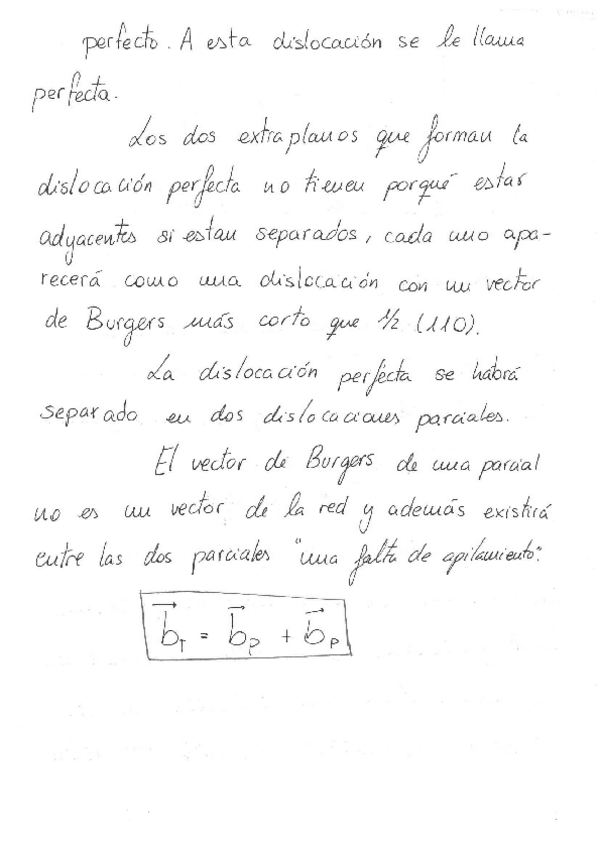 perfecto. A esta dislocación se le llama
perfecta.
Los dos extraplanos que forman la
dislocación perfecta no tienen porqué estar
adyacentes si estan separados, cada uno apa-
recerá como una dislocación con un vector
de Burgers más corto que 1/2 (110).
La dislocación perfecta se habrá
separado en dos dislocaciones parciales.
El vector de Burgers de una parcial
no es un vector de la red y además existirá
entre las dos parciales "una falta de apilamiento".
b⃗T = b⃗P + b⃗P